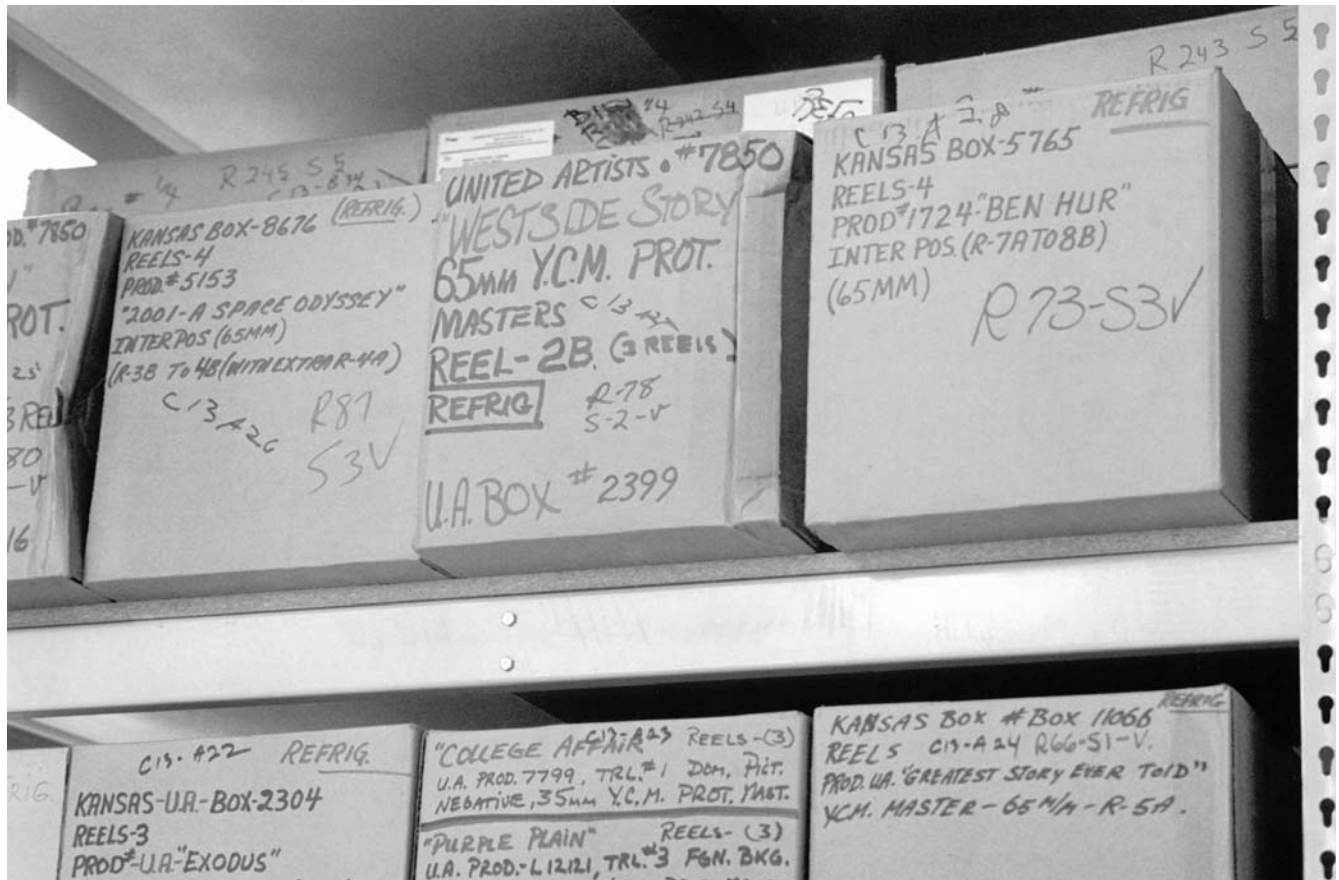 R 243 S 5
R 245 S 5
#4
R-242-S4
D.#7850
ROT.
3 REL
80
-V
16
KANSAS BOX-8676 (REFRIG.)
REELS-4
PROD.#5153
"2001-A SPACE ODYSSEY"
INTERPOS (65MM)
(R-3B TO 4B (WITH EXTRA R-4A)
C13 A26
R87
S3V
UNITED ARTISTS. #7850
"WESTSIDE STORY
65MM Y.C.M. PROT.
MASTERS
REEL-2B. (3 REELS)
REFRIG
R-78
S-2-V
U.A. BOX #2399
C 13 A 28
REFRIG
KANSAS BOX-5765
REELS-4
PROD#1724-"BEN HUR"
INTER POS. (R-7A TO 8B)
(65MM)
R73-S3V
RIG.
C13-A22 REFRIG.
KANSAS-U.A.-BOX-2304
REELS-3
PROD#-U.A.-"EXODUS"
"COLLEGE AFFAIR" C13-A23 REELS-(3)
U.A. PROD. 7799, TRL.#1 DOM. PICT.
NEGATIVE, 35MM Y.C.M. PROT. MAST.
"PURPLE PLAIN" REELS-(3)
U.A. PROD.-L12121, TRL.#3 FGN. BKG.
REFRIG
KANSAS BOX # BOX 11066
REELS C13-A24 R66-S1-V.
PROD. U.A. "GREATEST STORY EVER TOLD"
YCM. MASTER-65M/M-R-5A.